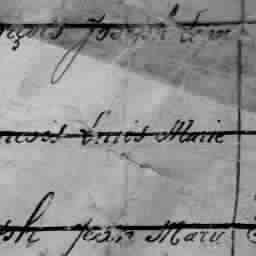 nçois Joseph
ncois Louis Marie
eph Jean Marie